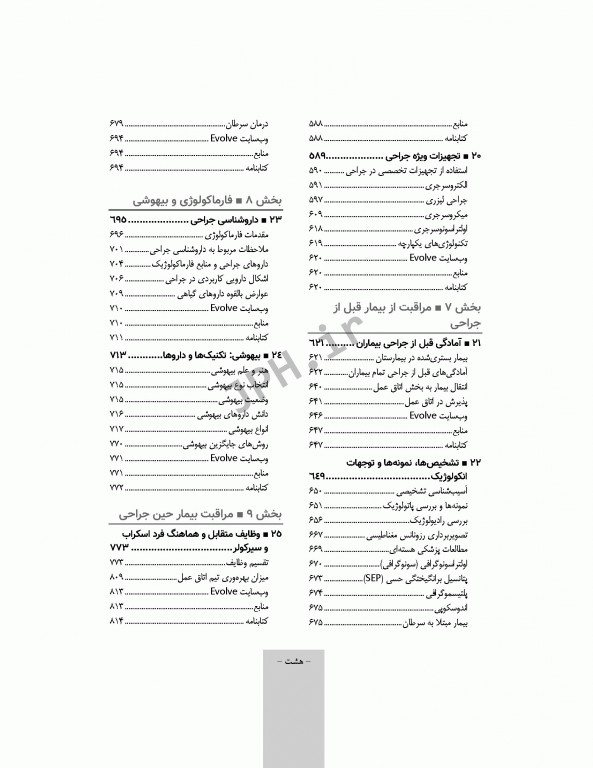 منابع ۵۸۸
کتابنامه ۵۸۸
۲۰ ■ تجهیزات ویژه جراحی ۵۸۹
استفاده از تجهیزات تخصصی در جراحی ۵۹۰
الکتروسرجری ۵۹۱
جراحی لیزری ۵۹۷
میکروسرجری ۶۰۹
اولتراسونوسرجری ۶۱۸
تکنولوژی‌های یکپارچه ۶۱۹
وب‌سایت Evolve ۶۲۰
منابع ۶۲۰
کتابنامه ۶۲۰
بخش ۷ ■ مراقبت از بیمار قبل از
جراحی
۲۱ ■ آمادگی قبل از جراحی بیماران ۶۲۱
بیمار بستری‌شده در بیمارستان ۶۲۱
آمادگی‌های قبل از جراحی تمام بیماران ۶۲۲
انتقال بیمار به بخش اتاق عمل ۶۴۰
پذیرش در اتاق عمل ۶۴۱
وب‌سایت Evolve ۶۴۶
منابع ۶۴۷
کتابنامه ۶۴۷
۲۲ ■ تشخیص‌ها، نمونه‌ها و توجهات
انکولوژیک ۶۴۹
آسیب‌شناسی تشخیصی ۶۵۰
نمونه‌ها و بررسی پاتولوژیک ۶۵۱
بررسی رادیولوژیک ۶۵۶
تصویربرداری رزونانس مغناطیسی ۶۶۷
مطالعات پزشکی هسته‌ای ۶۶۹
اولتراسونوگرافی (سونوگرافی) ۶۷۰
پتانسیل برانگیختگی حسی (SEP) ۶۷۳
پلتیسموگرافی ۶۷۴
اندوسکوپی ۶۷۵
بیمار مبتلا به سرطان ۶۷۵
درمان سرطان ۶۷۹
وب‌سایت Evolve ۶۹۴
منابع ۶۹۴
کتابنامه ۶۹۴
بخش ۸ ■ فارماکولوژی و بیهوشی
۲۳ ■ داروشناسی جراحی ۶۹۵
مقدمات فارماکولوژی ۶۹۶
ملاحظات مربوط به داروشناسی جراحی ۷۰۱
داروهای جراحی و منابع فارماکولوژیک ۷۰۴
اشکال دارویی کاربردی در جراحی ۷۰۶
عوارض بالقوه داروهای گیاهی ۷۰۹
وب‌سایت Evolve ۷۱۰
منابع ۷۱۰
کتابنامه ۷۱۱
۲۴ ■ بیهوشی: تکنیک‌ها و داروها ۷۱۳
هنر و علم بیهوشی ۷۱۵
انتخاب نوع بیهوشی ۷۱۵
وضعیت بیهوشی ۷۱۵
دانش داروهای بیهوشی ۷۱۶
انواع بیهوشی ۷۱۷
روش‌های جایگزین بیهوشی ۷۷۰
وب‌سایت Evolve ۷۷۱
منابع ۷۷۱
کتابنامه ۷۷۲
بخش ۹ ■ مراقبت بیمار حین جراحی
۲۵ ■ وظایف متقابل و هماهنگ فرد اسکراب
و سیرکولر ۷۷۳
تقسیم وظایف ۷۷۳
میزان بهره‌وری تیم اتاق عمل ۸۰۹
وب‌سایت Evolve ۸۱۳
منابع ۸۱۳
کتابنامه ۸۱۴
- هشت -
JPH.ir